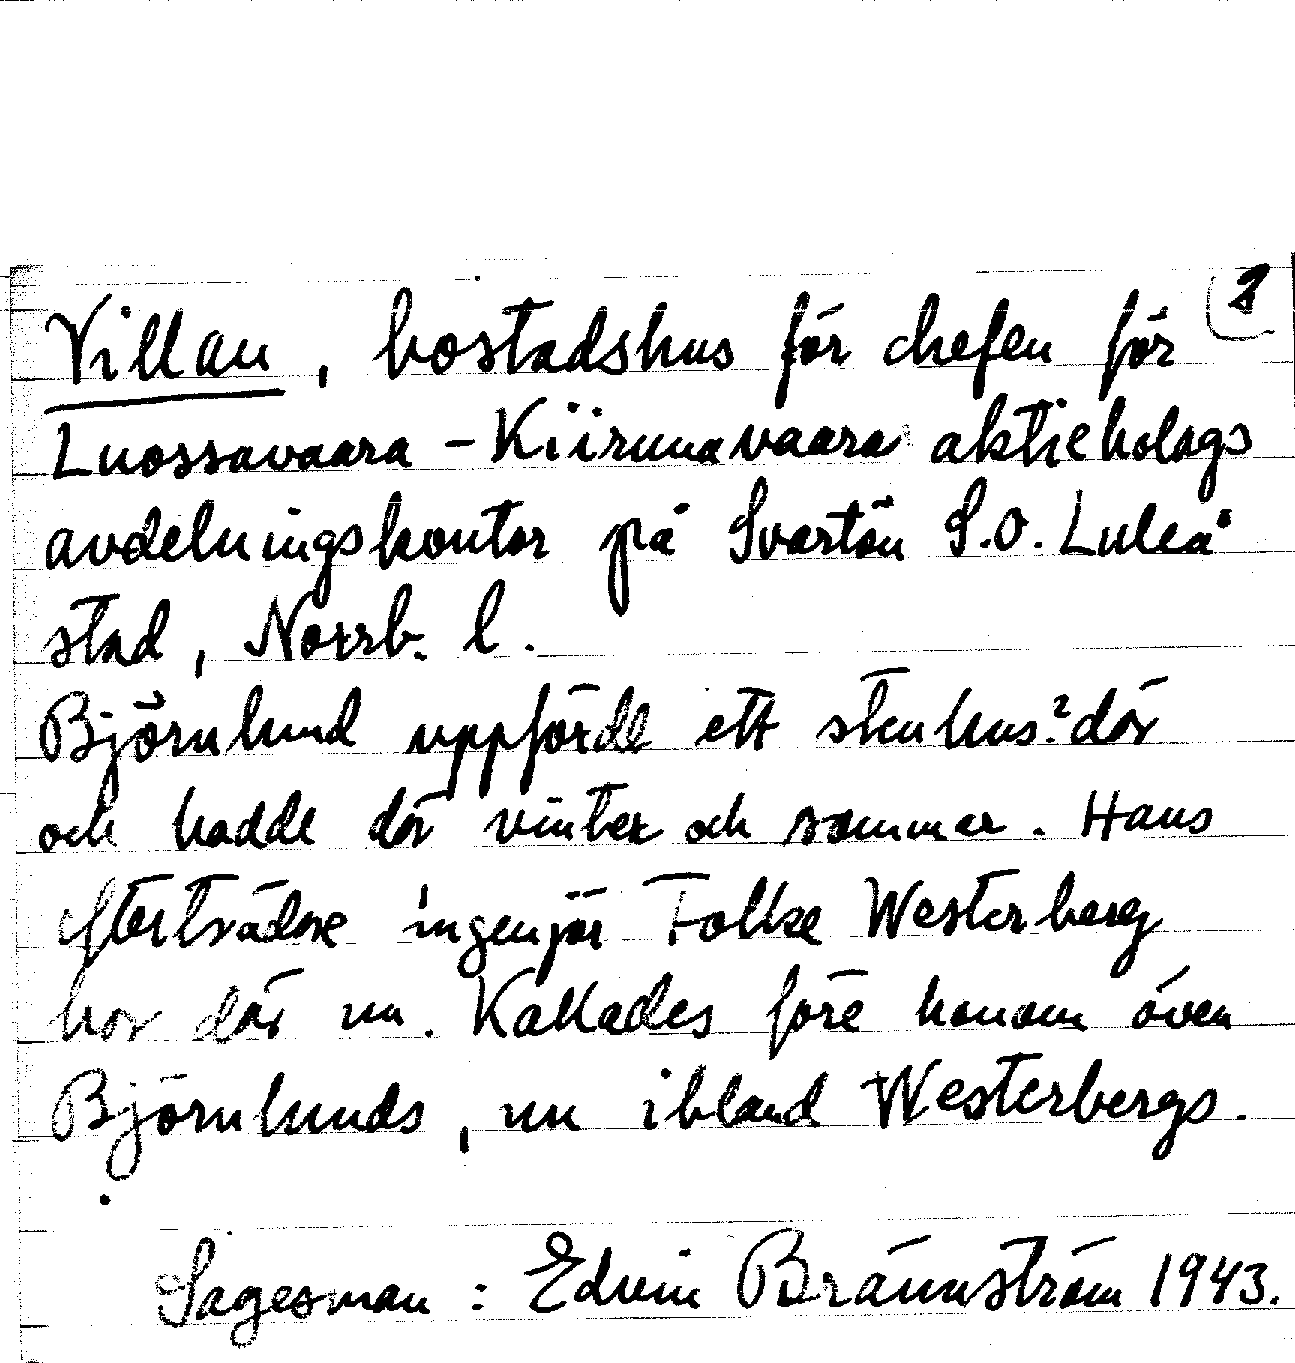 2
Villan, bostadshus för chefen för
Luossavaara-Kiirunavaara aktiebolags
avdelningskontor på Svartön S.O. Luleå
stad, Norrb. l.
Björnlund uppförde ett stenhus? där
och bodde där vinter och sommar. Hans
efterträdare ingenjör Folke Westerberg
bor där nu. Kallades före honom även
Björnlunds, nu ibland Westerbergs.
Sagesman: Edvin Brännström 1943.